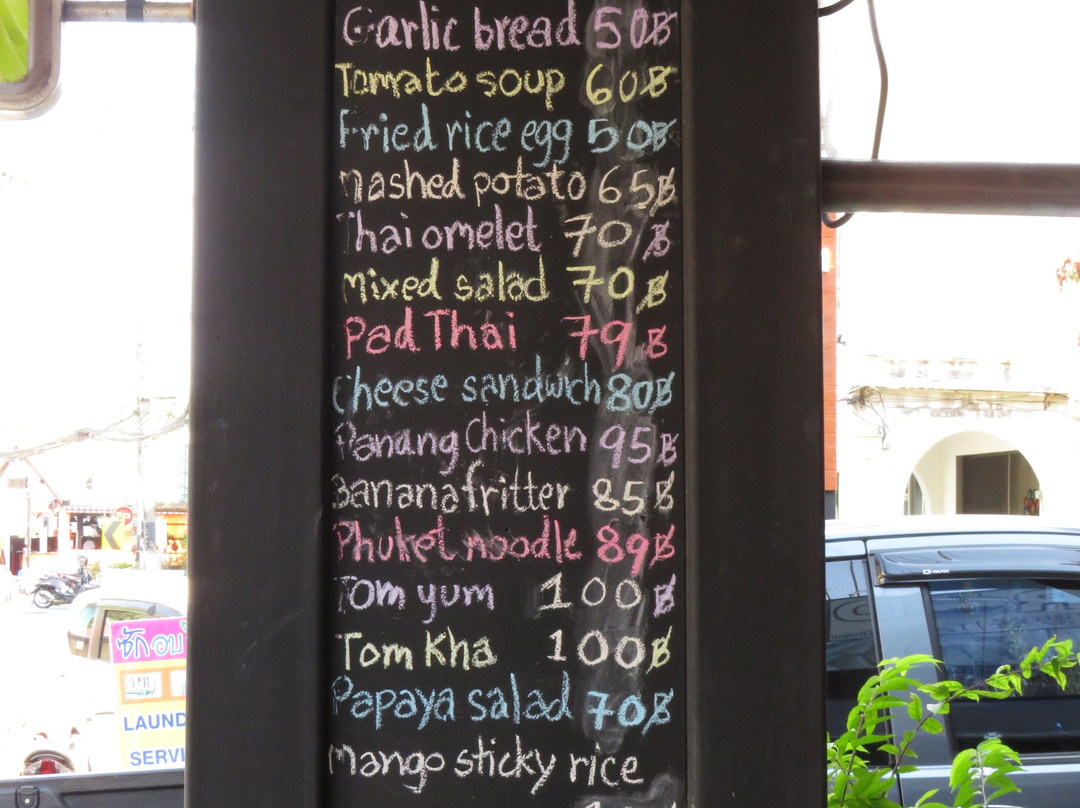 Garlic bread 50฿
Tomato soup 60฿
Fried rice egg 50฿
mashed potato 65฿
Thai omelet 70฿
Mixed salad 70฿
Pad Thai 79฿
Cheese sandwich 80฿
Panang Chicken 95฿
Banana fritter 85฿
Phuket noodle 89฿
Tom yum 100฿
Tom Kha 100฿
Papaya salad 70฿
Mango sticky rice
ซัก อบ
LAUND
SERVI
D-MAX